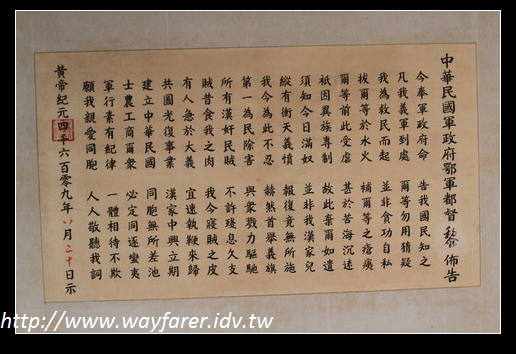 中華民國軍政府鄂軍都督黎 佈告
今奉軍政府命 告我國民知之
凡我義軍到處 爾等勿用猜疑
我為救民而起 並非貪功自私
拔爾等於水火 補爾等之瘡痍
爾等前此受虐 甚於苦海沉迷
祇因異族專制 故此棄爾如遺
須知今日滿奴 並非我漢家兒
縱有衝天義憤 報復竟無所施
我今為此不忍 赫然首舉義旗
第一為民除害 與衆戮力驅馳
所有漢奸民賊 不許殘息久支
賊昔食我之肉 我今寢賊之皮
有人急於大義 宜速執鞭來歸
共圖光復事業 漢家中興立期
建立中華民國 同胞無所差池
士農工商爾衆 必定同逐蠻夷
軍行素有紀律 一體相待不欺
願我親愛同胞 人人敬聽我詞
黃帝紀元四千六百零九年八月二十日示
http://www.wayfarer.idv.tw